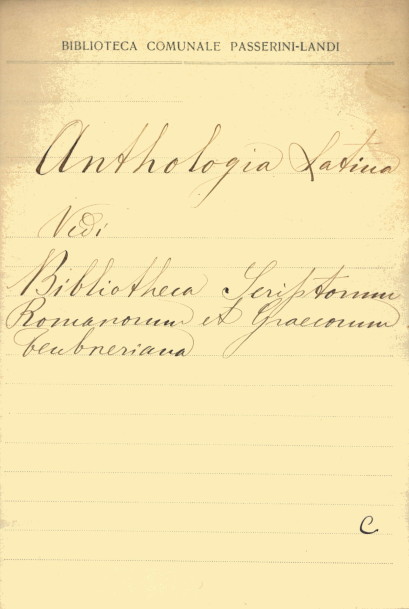 BIBLIOTECA COMUNALE PASSERINI-LANDI
Anthologia Latina
Vedi
Bibliotheca Scriptorum
Romanorum et Graecorum
teubneriana
C